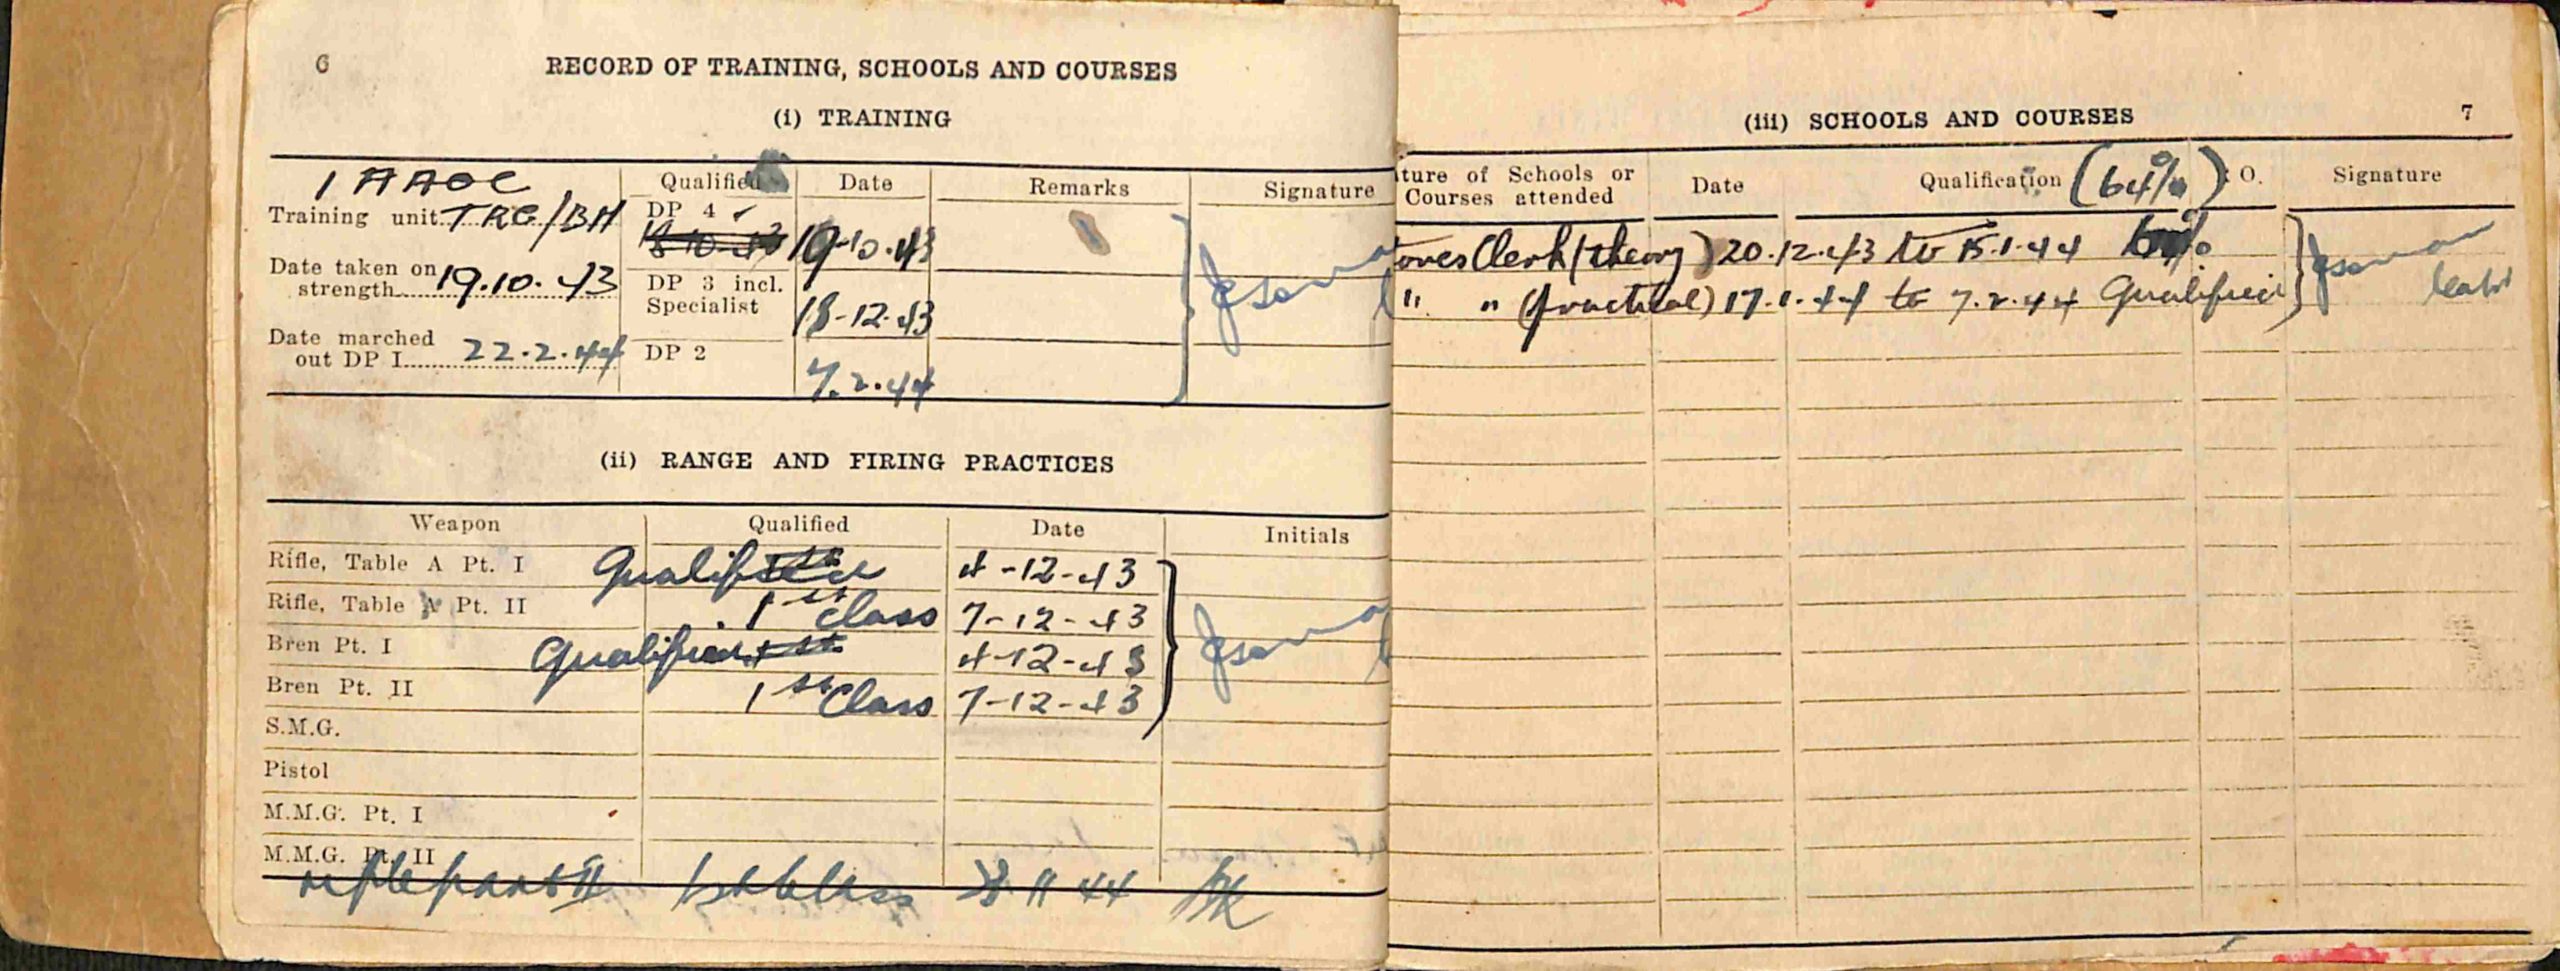 6
RECORD OF TRAINING, SCHOOLS AND COURSES
(i) TRAINING
1 AAOC
Training unit TRG/BH
Date taken on strength 19.10.43
Date marched out DP I 22.2.44
Qualified Date Remarks Signature
DP 4 ✓ 19-10.43
DP 3 incl. Specialist 18-12-43
DP 2 7.2.44
(ii) RANGE AND FIRING PRACTICES
Weapon Qualified Date Initials
Rifle, Table A Pt. I Qualified 4-12-43
Rifle, Table A Pt. II 1st Class 7-12-43
Bren Pt. I Qualified 4-12-43
Bren Pt. II 1st Class 7-12-43
S.M.G.
Pistol
M.M.G. Pt. I
M.M.G. Pt. II
rifle part II 1st Class 11 44
7
(iii) SCHOOLS AND COURSES
ture of Schools or Courses attended Date Qualification (64%) O. Signature
tores Clerk (theory) 20.12.43 to 15.1.44
" " (practical) 17.1.44 to 7.2.44 Qualified